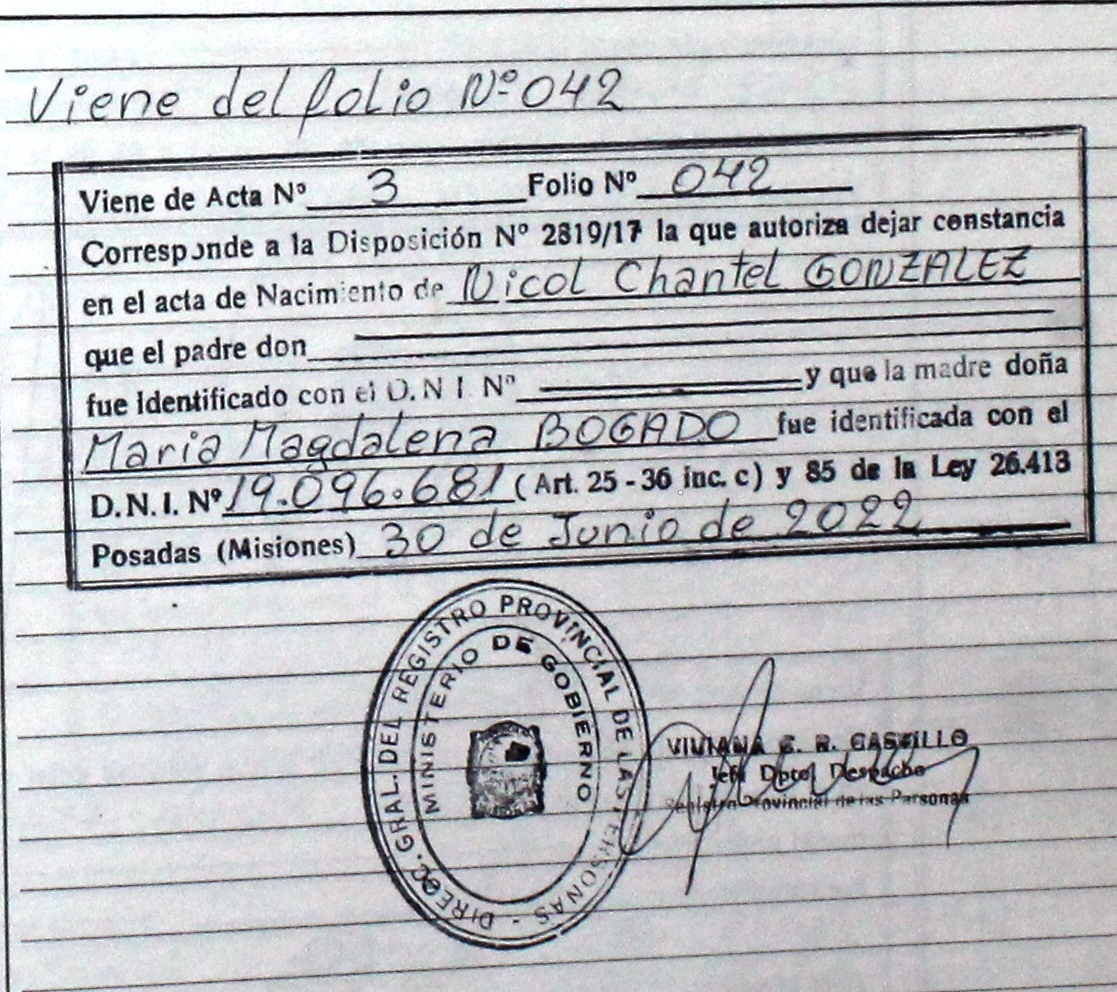 Viene del folio Nº 042
Viene de Acta Nº 3 Folio Nº 042
Corresponde a la Disposición Nº 2819/17 la que autoriza dejar constancia
en el acta de Nacimiento de Nicol Chantel GONZALEZ
que el padre don
fue identificado con el D.N.I. Nº y que la madre doña
Maria Magdalena BOGADO fue identificada con el
D.N.I. Nº 19.096.681 (Art. 25 - 36 inc. c) y 85 de la Ley 26.413
Posadas (Misiones) 30 de Junio de 2022
DIREC. GRAL. DEL REGISTRO PROVINCIAL DE LAS PERSONAS -
MINISTERIO DE GOBIERNO
VIVIANA E. R. CASTILLO
Jefe Dpto. Despacho
Registro Provincial de las Personas